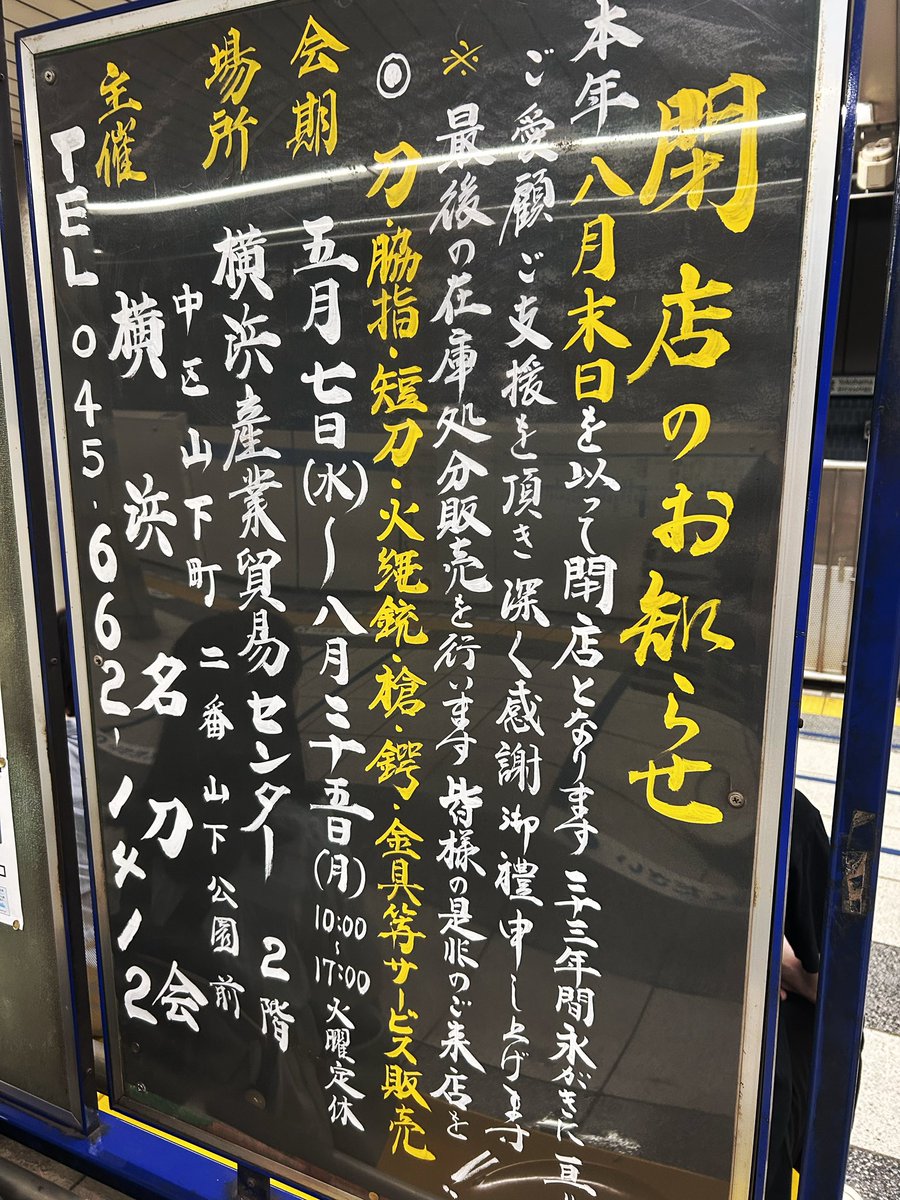 閉店のお知らせ
本年八月末日を以って閉店となります 三十三年間永がきに亘り
ご愛顧ご支援を頂き深く感謝御禮申し上げます
※最後の在庫処分販売を行います 皆様の是非のご来店を!!
◎刀・脇指・短刀・火縄銃・槍・鍔・金具等サービス販売
会期 五月七日(水)〜八月二十五日(月) 10:00〜17:00 火曜定休
場所 横浜産業貿易センター 2階
中区山下町二番 山下公園前
主催 横浜名刀会
TEL 045.662-1412